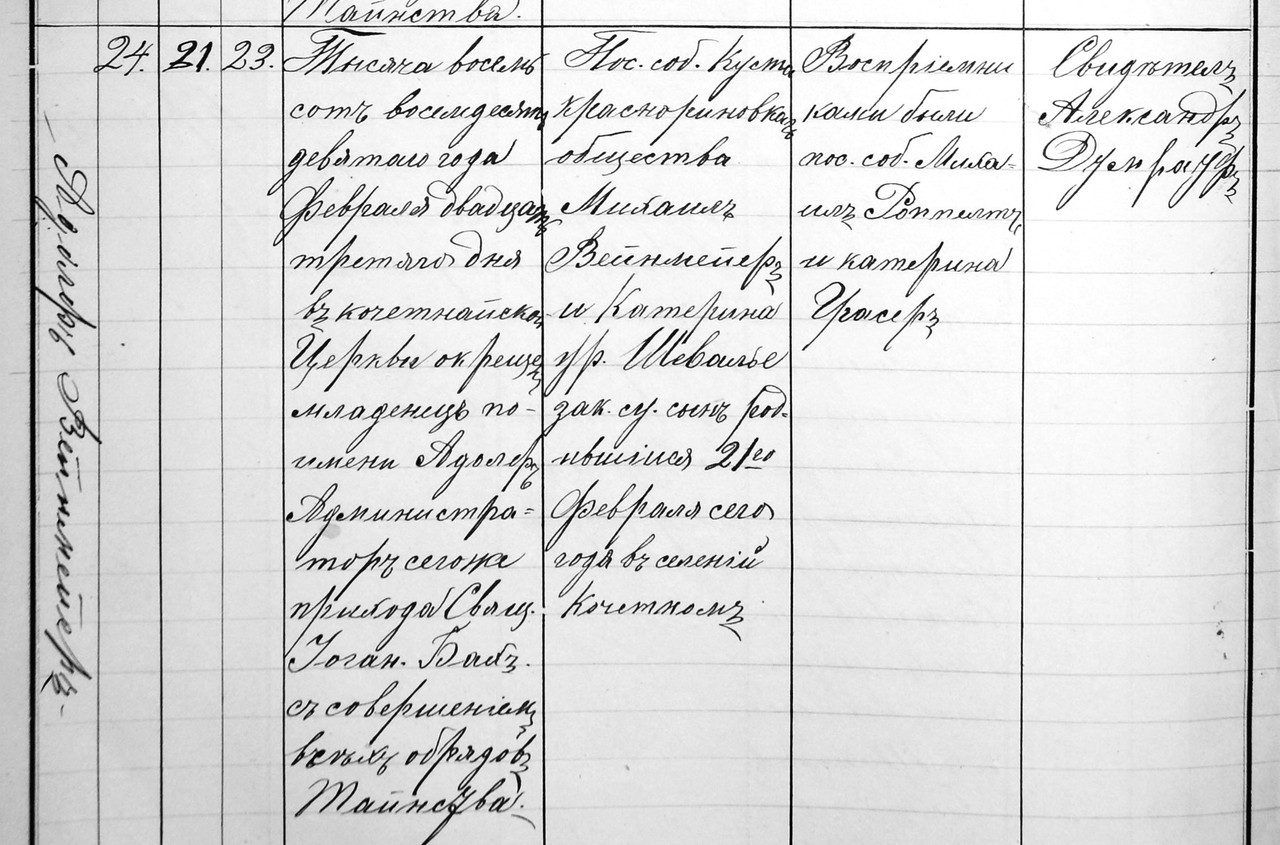 Таинства.
Адолфъ Вейнмейеръ
24. 21. 23.
Тысяча восемь
сотъ восемдесятъ
девятаго года
Февраля двадцать
третяго дня
въ кочетнайской
Церкви окрещенъ
младенецъ по-
имени Адолфъ
Администра-
торъ сегоже
прихода Свящ.
Іоган. Бахъ.
съ совершеніемъ
всѣхъ обрядовъ
Таинства.
Пос. соб.
Краснориновка
общества
Михаилъ
Вейнмейеръ
и Катерина
ур. Шевалье
зак. су. сынъ род-
ившійся 21го
Февраля сего
года въ селеній
Кочетномъ
Воспріемни
ками были
пос. соб. Миха-
илъ Роппелтъ
и катерина
Грасеръ
Свидѣтель
Александръ
Думрауфъ